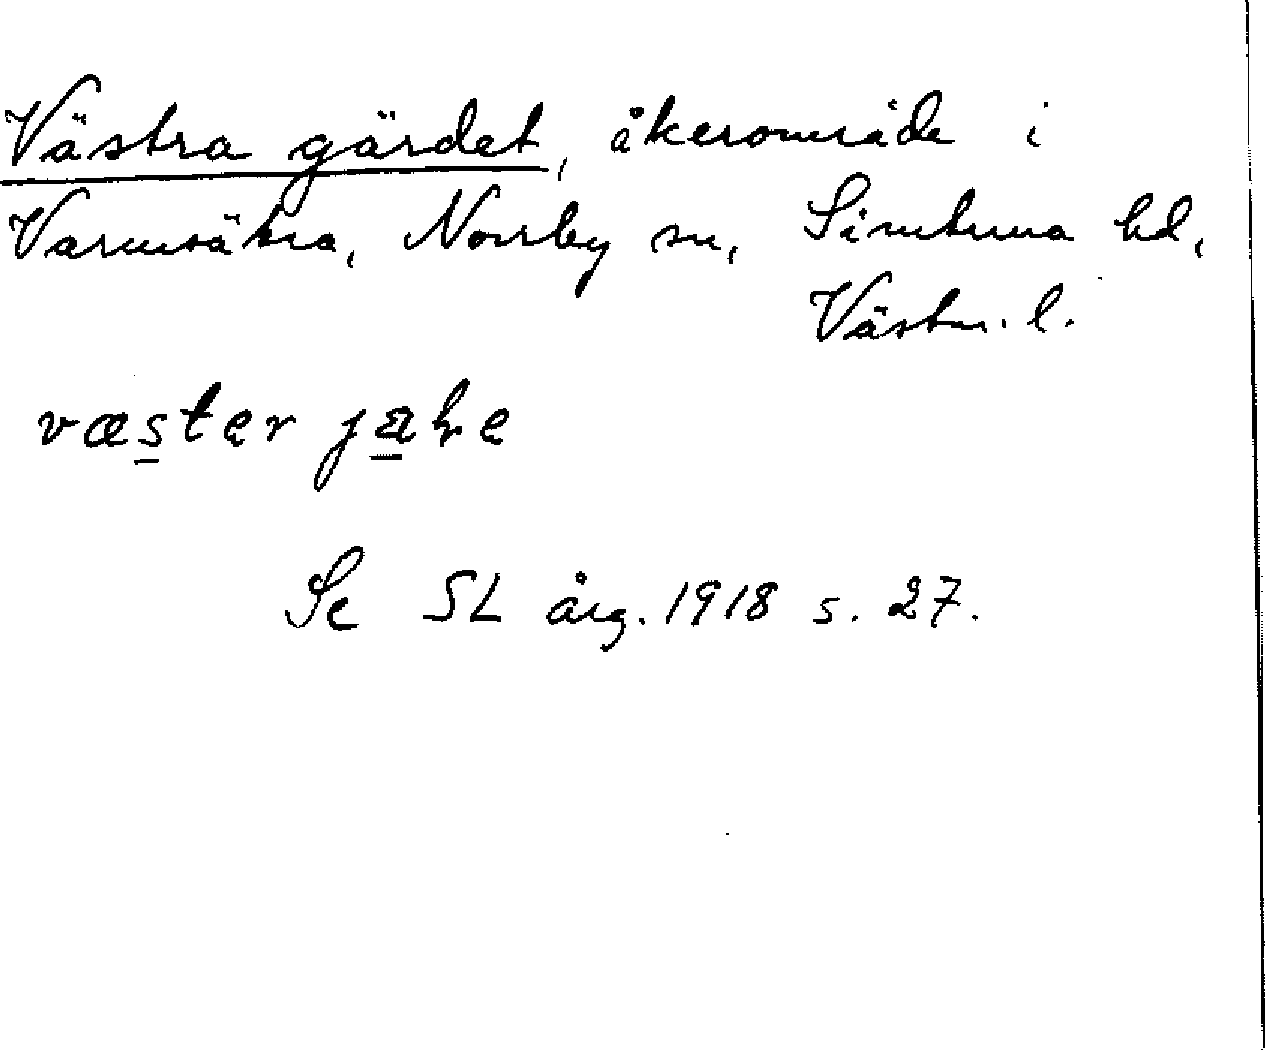 Västra gärdet, åkerområde i
Varmsätra, Norrby sn, Simtuna hd,
Västm. l.
væster
Se SL årg. 1918 s. 27.